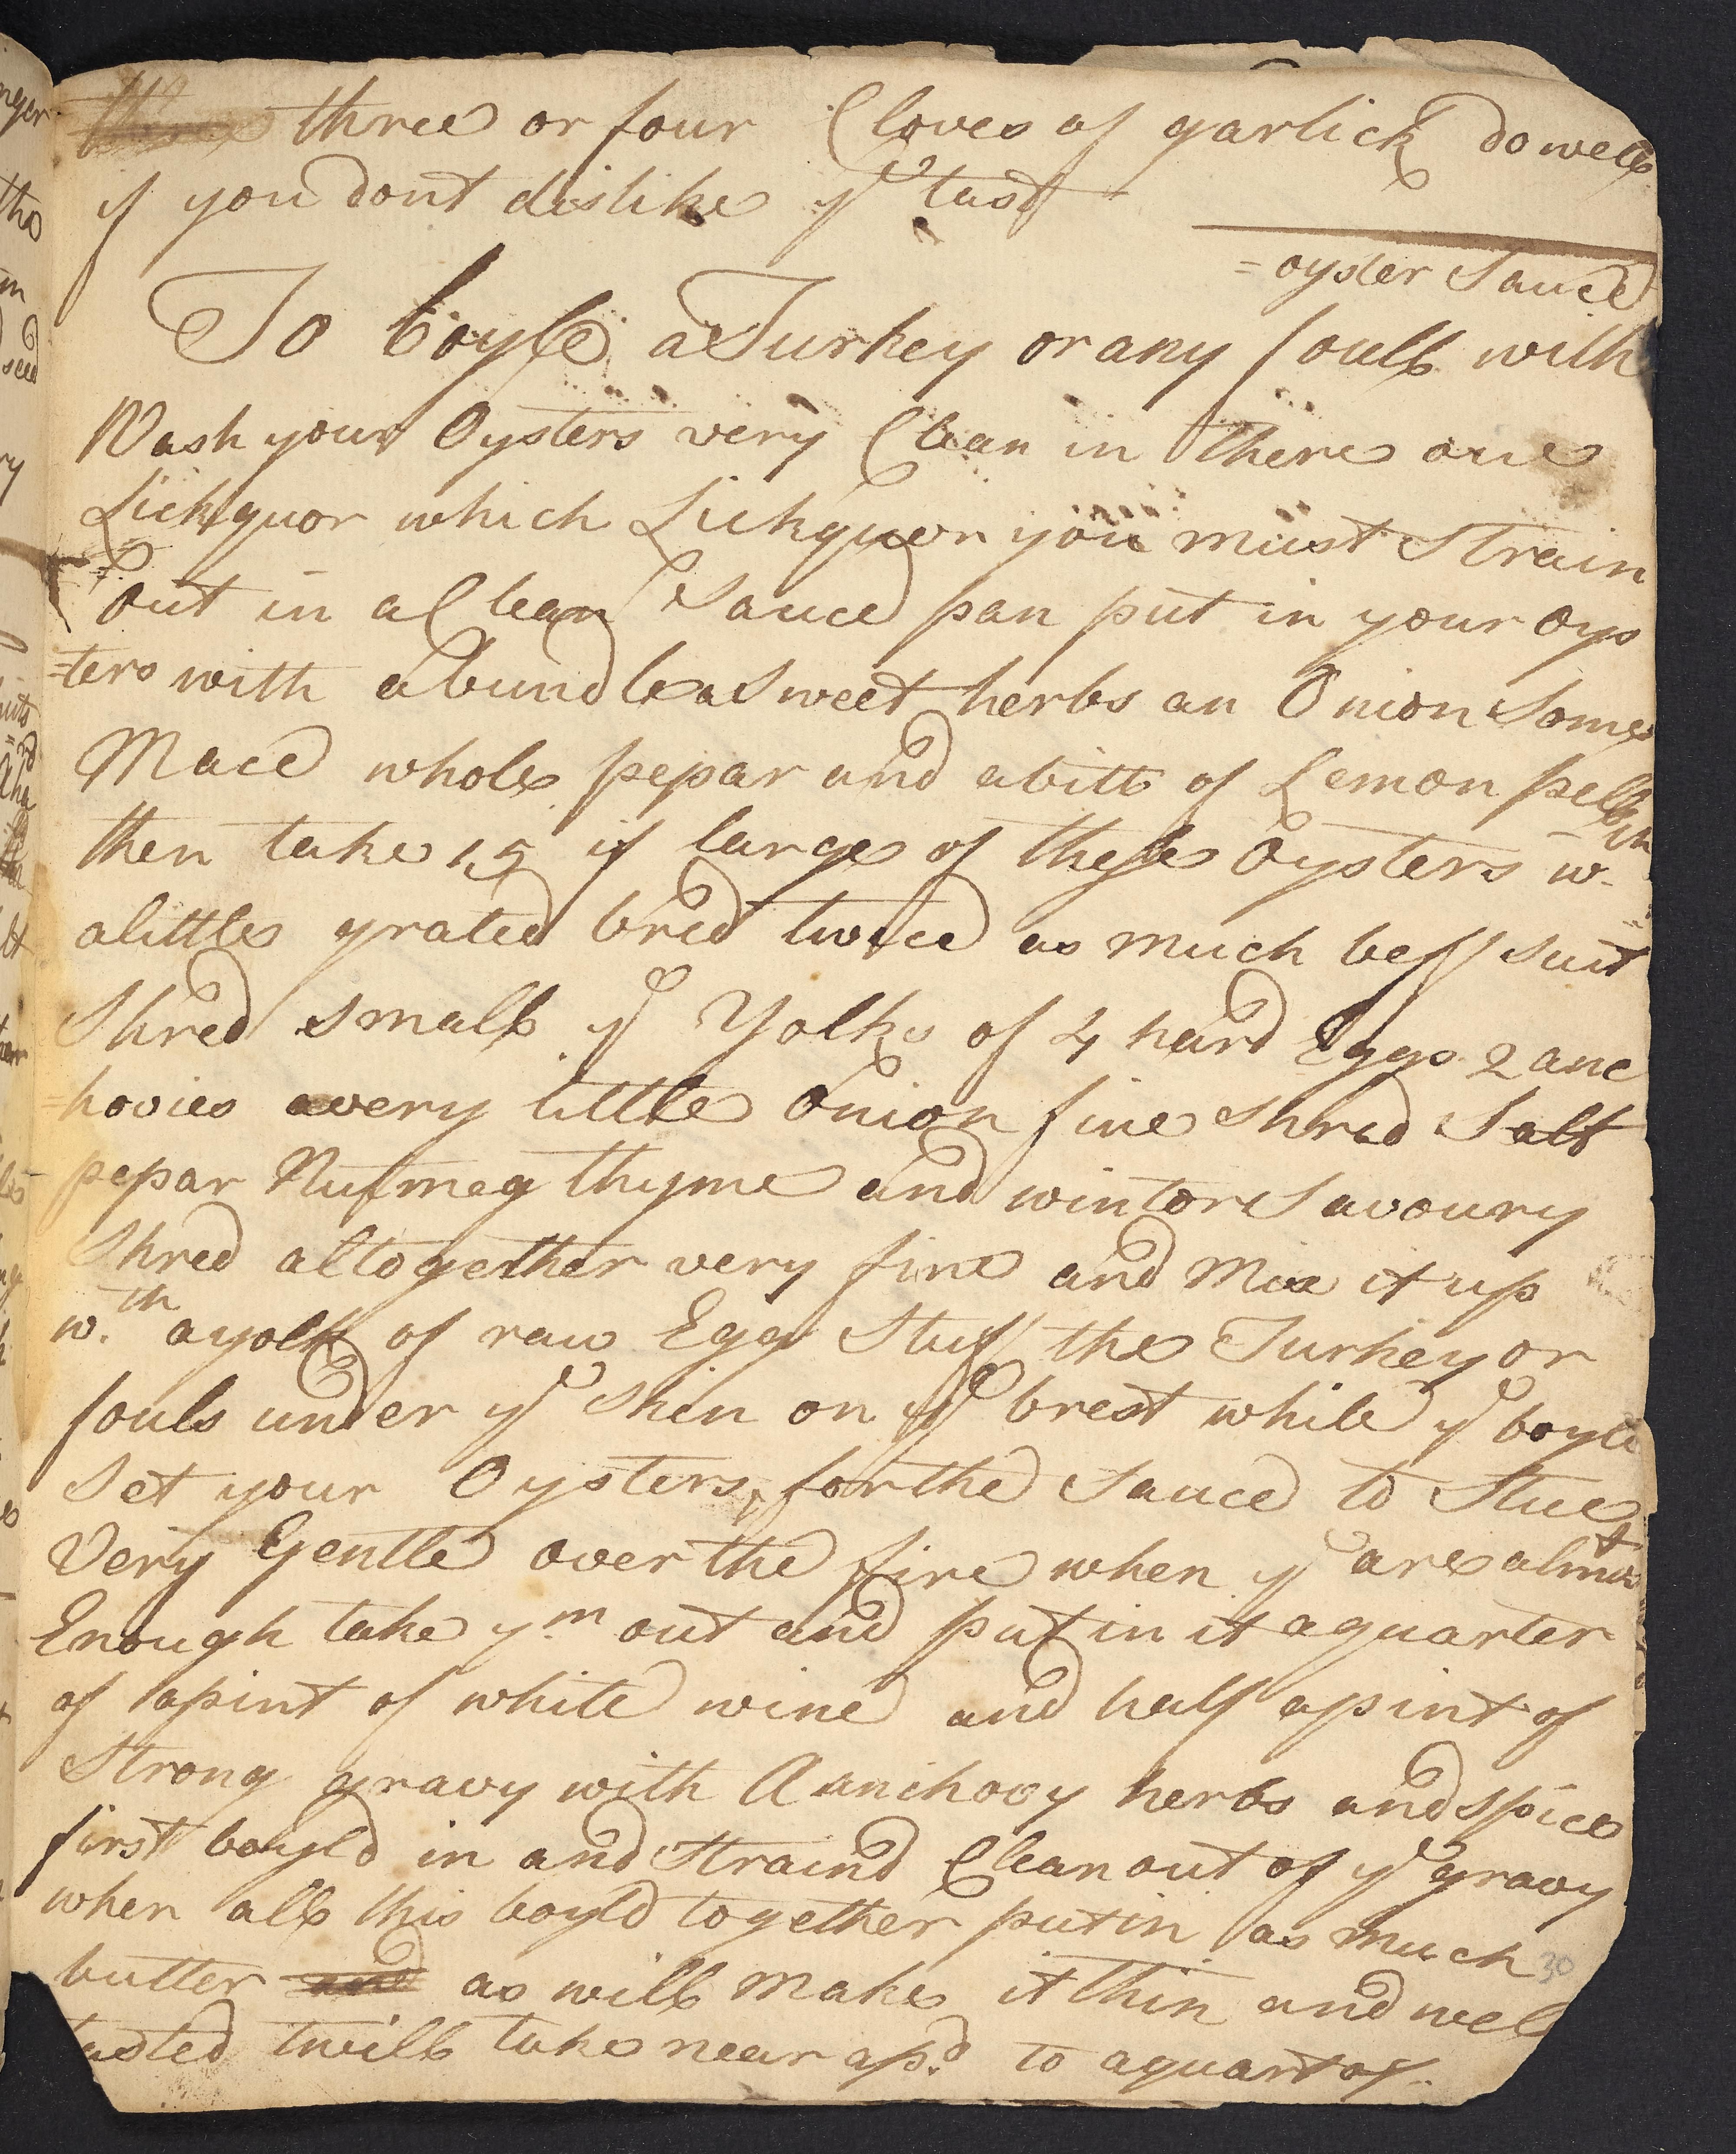 three or four Cloves of garlick do well
if you dont dislike ye tast
=oyster Sauce
To boyle a Turkey or any foull with
Wash your Oysters very Clean in there one
Lickquor which Lickquor you must Strain
out in a Clean Sauce pan put in your Oys
=ters with a bundle a Sweet herbs an Onion Some
Mace whole pepar and a bitt of Lemon pell
then take 15 if large of these Oysters wth
a little grated bred twice as much beff Suit
Shred small ye Yolks of 4 hard Eggs 2 anc
=hovies a very little Onion fine Shred Salt
pepar Nutmeg thyme and wintor Savoury
Shred altogether very fine and Mix it up
wth a yolk of raw Egg Stuff the Turkey or
fouls under ye Skin on ye brest while ye boyle
Set your Oysters for the Sauce to Stue
Very Gentle over the fire when ye are almost
Enough take ym out and put in it a quarter
of a pint of white wine and half a pint of
Strong gravy with A anchovy herbs and Spice
first boyld in and Straind Clean out of ye gravy
when all this boyld together put in as much
30
butter and as will make it thin and well
tasted twill take near a pd to a quart of